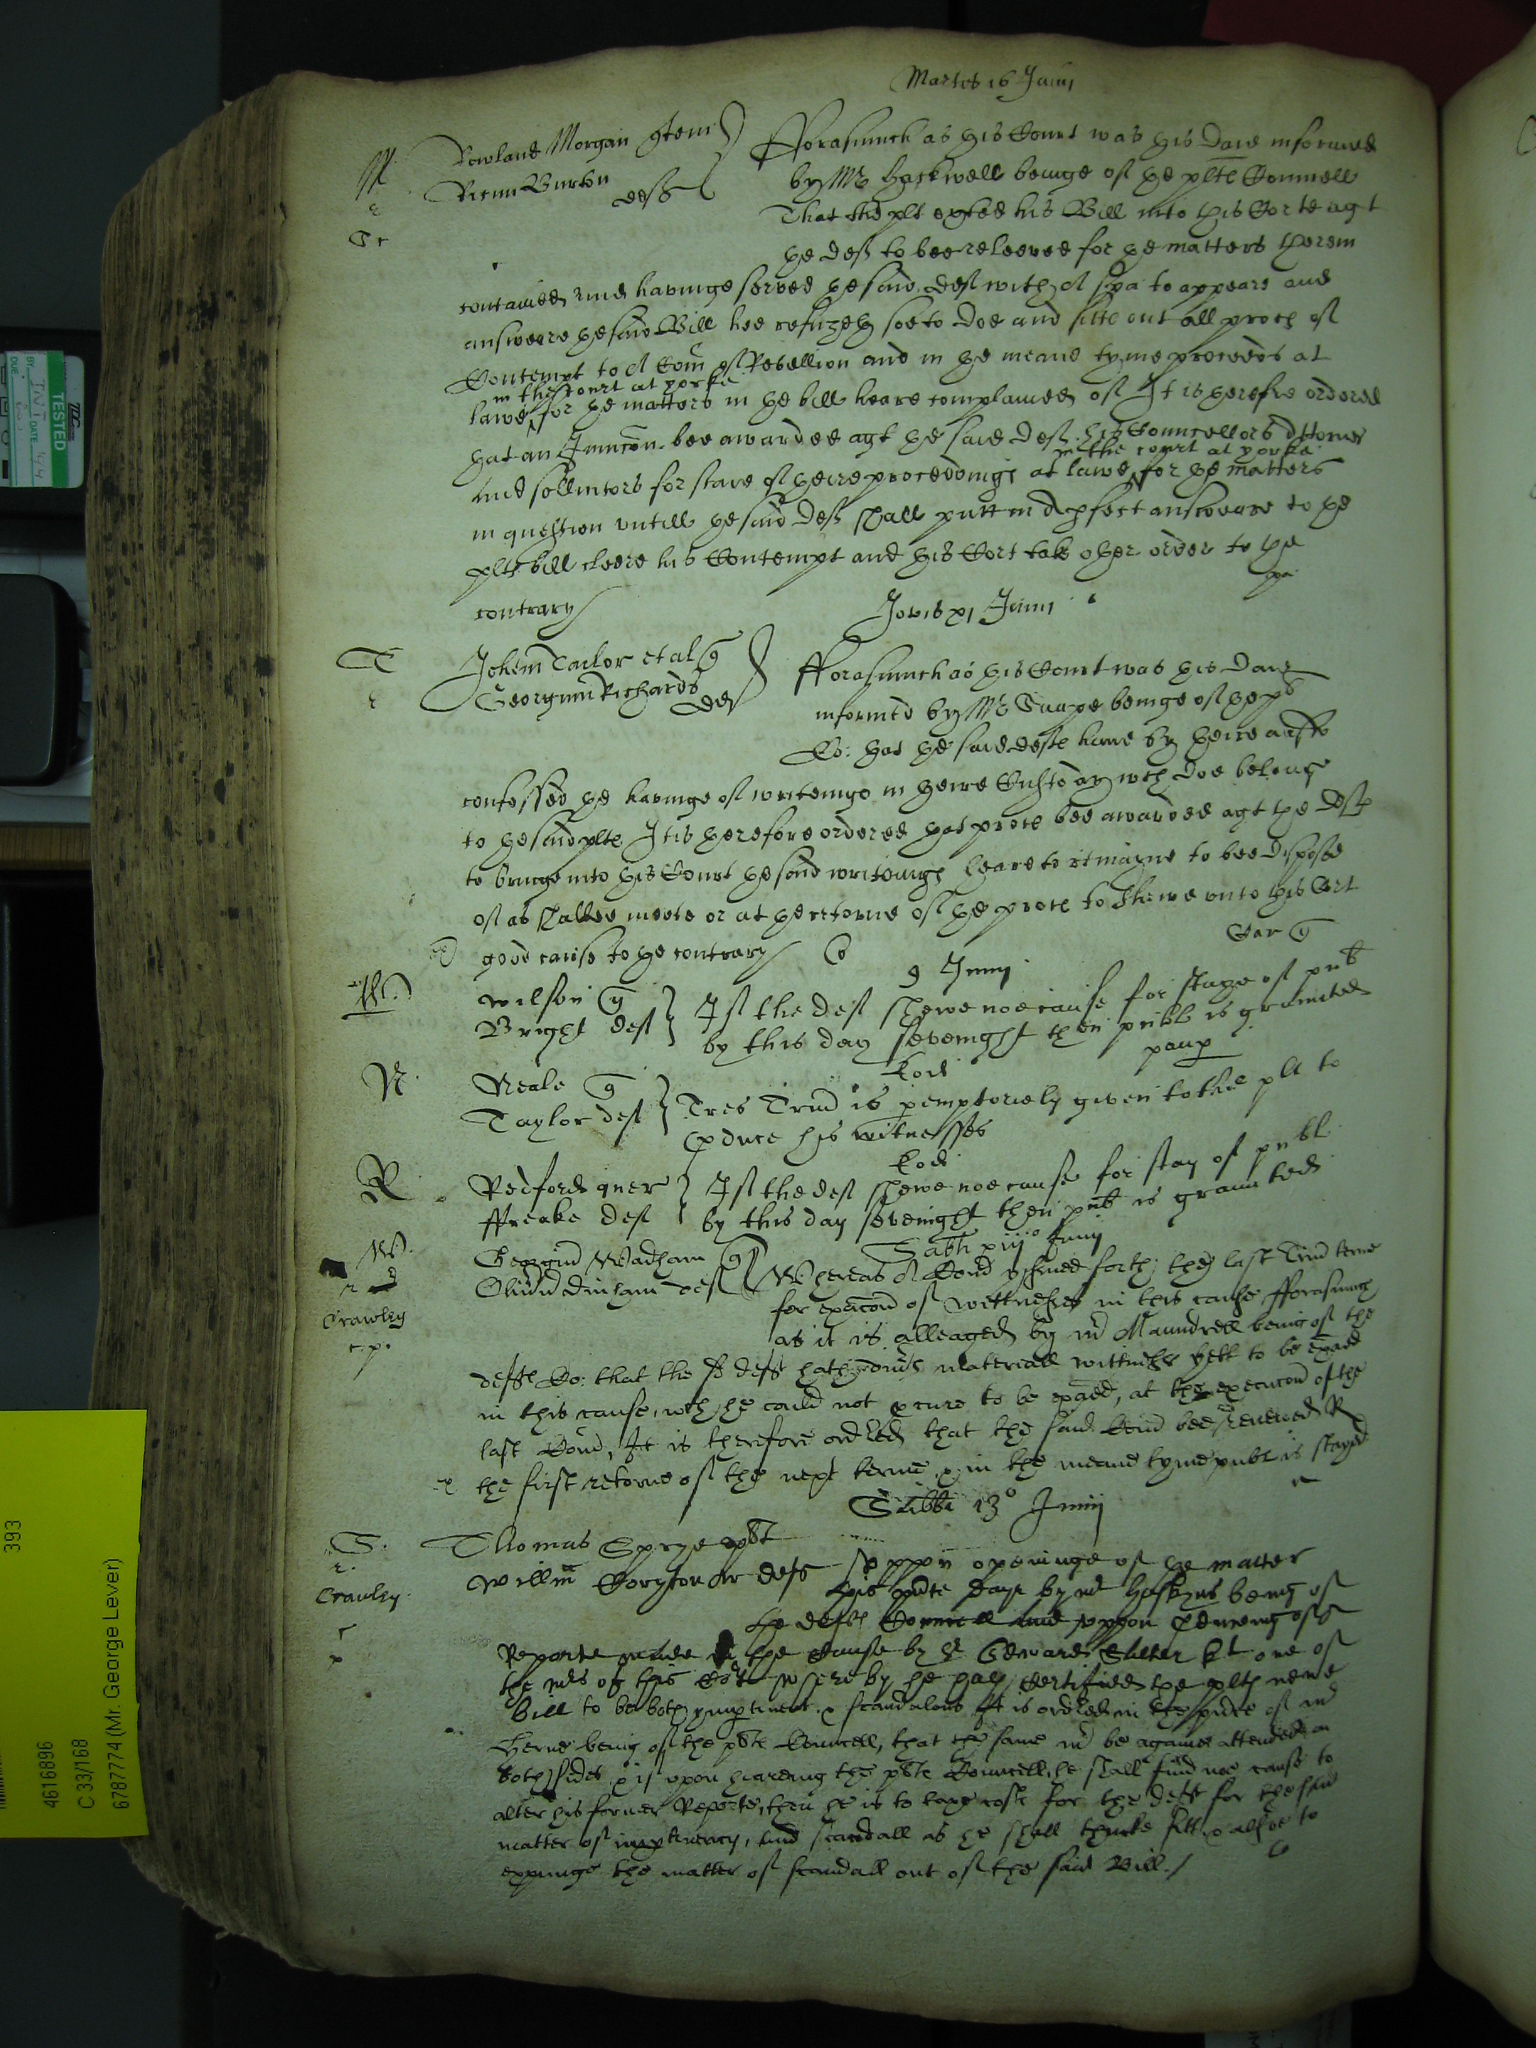 Martis 16 Junii
M Rowland Morgan gten
Ricum Burton deft
fforasmuch as this Court was this Daie informed
by Mr Hackwell beinge of the plts Counsell
That the plt exhted his Bill into this Corte agt
the deft to bee releeved for the matters therein
contained and havinge served the said deft with a spa to appeare and
answeare the said Bill hee refuzeth soe to doe and sitts out all proces of
Contempt to a Com of Rebellion and in the meane tyme proceeds at
in the Court at yorke
lawe for the matters in the bill heare complained of It is therefre ordered
that an Iniuncon bee awarded agt the said deft his Councellors Attorneis
in the court at yorke
and sollicitors for staie of theire proceedinges at lawe for the matters
in question untill the said deft shall putt in a pfect answeare to the
plts bill cleere his Contempt and this Cort take other order to the
contrary
Jovis xj Junii
T Johem Tailor et al q
Georgium Richards def
fforasmuch as this Court was this Daie
informed by Mr beinge of the pts
Co: that the said defts have by theire ansr
confessed the havinge of writeings in theire Custody wch doe belonge
to the said plts It is therefore ordered that proces bee awarded agt the defts
to bringe into this Court the said writeings heare to remayne to bee disposed
of as shalbee meete or at the retorne of the proces to shewe unto this Cort
good cause to the contrary
9 Junii
W Wilson q
Bright deft
If the deft shewe noe cause for staye of pub
by this day sevenight then publ is graunted
N Neale q
Taylor deft
Eod
paup
Tres Trin is pemptoriely given to the plt to
pduce his witnesses
R Redford quer
ffreake deft
Eod
If the deft shewe noe cause for stay of publ
by this day sevenight then pub is graunted
Sabti xiij Junij
W Georgiu Wadham q
Oliviu Dinham deft
Crawley
Whereas a Comd yssued forth the last Trin terme
for exacon of wittnesses in this cause fforasmuch
as it is alleaged by Mr Maundrell being of the
defts Co: that the sd deft hath materiall wittnesses yett to be exaied
in this cause, wch he could not pcure to be exaied, at the execucon of the
last Comd, It is therefore ordred that the said Comd bee renewed R
the first retorne of the next terme & in the meane tyme publ is stayed
Sabbti 13o Junij
S Thomas Sprye
Willm Coryton Ar deft
Crawley
uppon openinge of the matter
this pnte daye by Mr Hoskyns being of
the defts Councell and uppon pduceing of a
Reporte made in the Cause by Sr Edward Salter kt one of
the Mrs of this Cort whereby he hath Certified the plts newe
Bill to be both ympertinent & scandalous It is ordred in the pnce of Mr
Herne being of the plts Councell, that the same Mr be againe attended on
both sides & if upon hearing the plts Councell, he shall find noe cause to
alter his former Reporte, then he is to taxe costs for the deft for the said
matter of impertinency, and scandall as he shall thinke fitt & alsoe to
expunge the matter of scandall out of the said Bill./
TESTED
393
4616896
C 33/168
6787774 (Mr. George Lever)